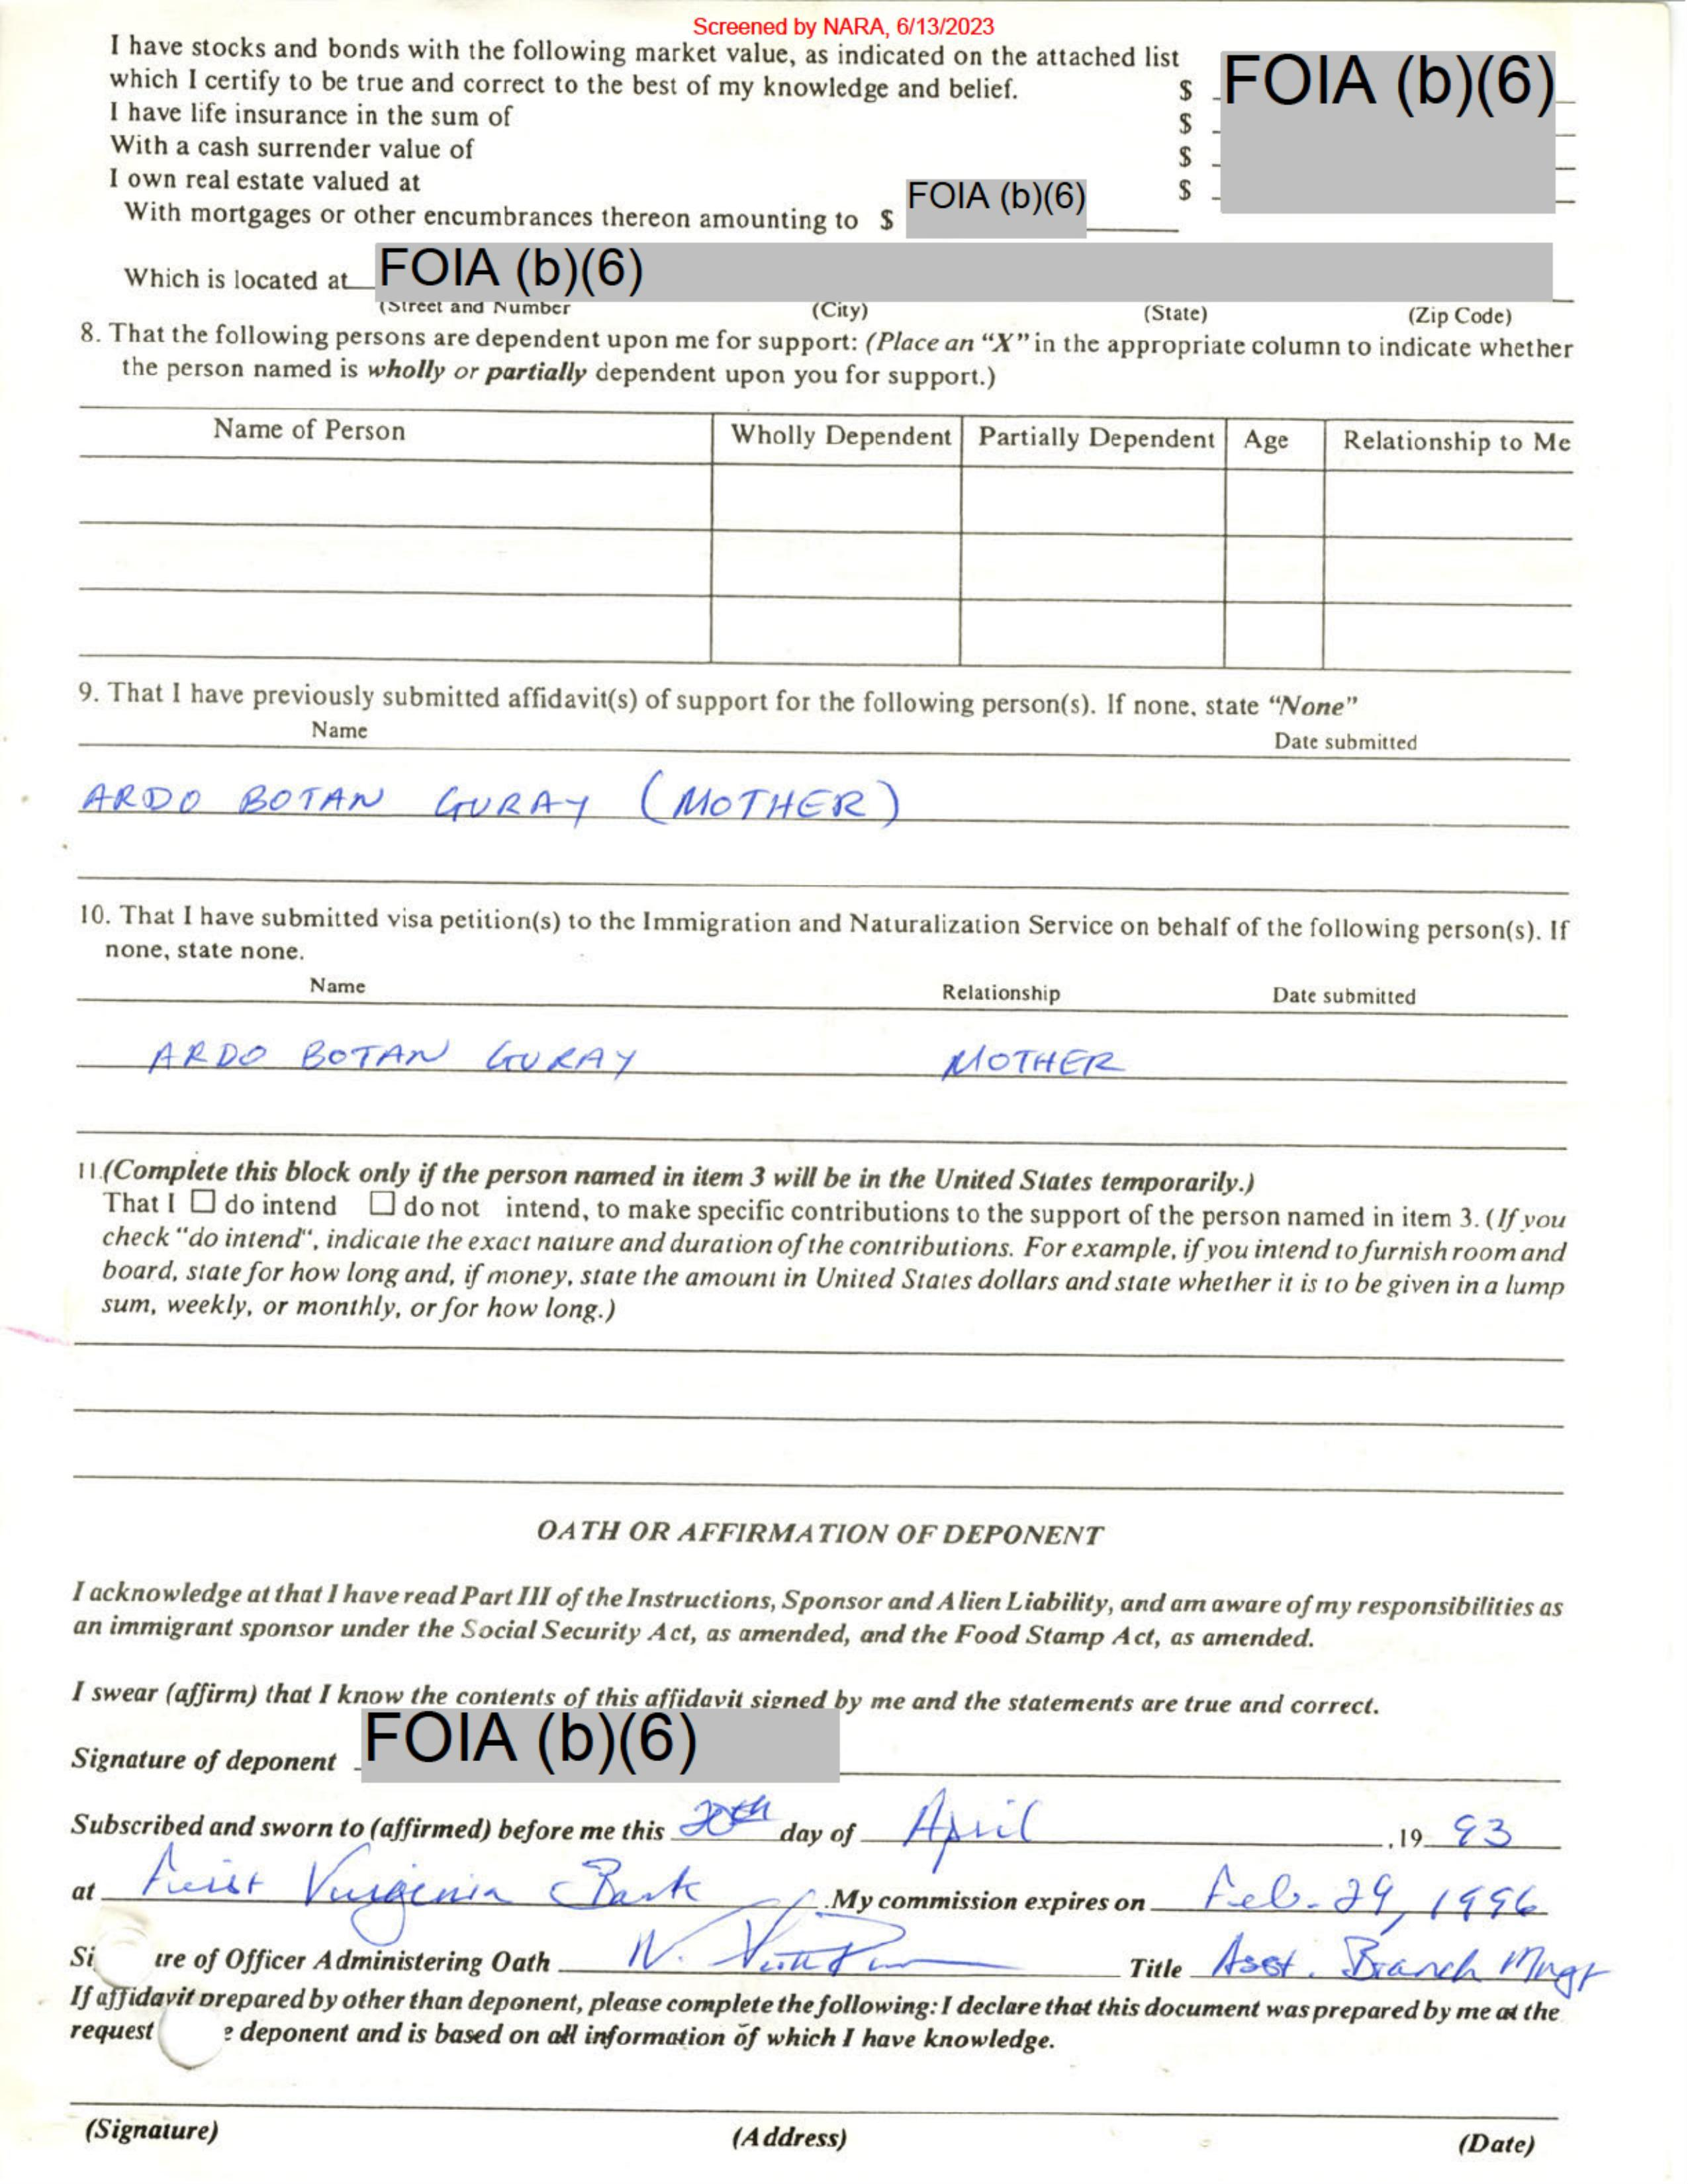 Screened by NARA, 6/13/2023
I have stocks and bonds with the following market value, as indicated on the attached list
which I certify to be true and correct to the best of my knowledge and belief. $ FOIA (b)(6)
I have life insurance in the sum of $
With a cash surrender value of $
I own real estate valued at $
With mortgages or other encumbrances thereon amounting to $ FOIA (b)(6)
Which is located at FOIA (b)(6)
(Street and Number (City) (State) (Zip Code)
8. That the following persons are dependent upon me for support: (Place an “X” in the appropriate column to indicate whether
the person named is wholly or partially dependent upon you for support.)
Name of Person Wholly Dependent Partially Dependent Age Relationship to Me
9. That I have previously submitted affidavit(s) of support for the following person(s). If none, state “None”
Name Date submitted
ARDO BOTAN GURAY (MOTHER)
10. That I have submitted visa petition(s) to the Immigration and Naturalization Service on behalf of the following person(s). If
none, state none.
Name Relationship Date submitted
ARDO BOTAN GURAY MOTHER
11.(Complete this block only if the person named in item 3 will be in the United States temporarily.)
That I ☐ do intend ☐ do not intend, to make specific contributions to the support of the person named in item 3. (If you
check "do intend", indicate the exact nature and duration of the contributions. For example, if you intend to furnish room and
board, state for how long and, if money, state the amount in United States dollars and state whether it is to be given in a lump
sum, weekly, or monthly, or for how long.)
OATH OR AFFIRMATION OF DEPONENT
I acknowledge at that I have read Part III of the Instructions, Sponsor and Alien Liability, and am aware of my responsibilities as
an immigrant sponsor under the Social Security Act, as amended, and the Food Stamp Act, as amended.
I swear (affirm) that I know the contents of this affidavit signed by me and the statements are true and correct.
Signature of deponent FOIA (b)(6)
Subscribed and sworn to (affirmed) before me this 20th day of April ,19 93
at First Virginia Bank .My commission expires on Feb. 29, 1996
Si ure of Officer Administering Oath N. Title Asst. Branch Mngr
If affidavit prepared by other than deponent, please complete the following: I declare that this document was prepared by me at the
request e deponent and is based on all information of which I have knowledge.
(Signature) (Address) (Date)